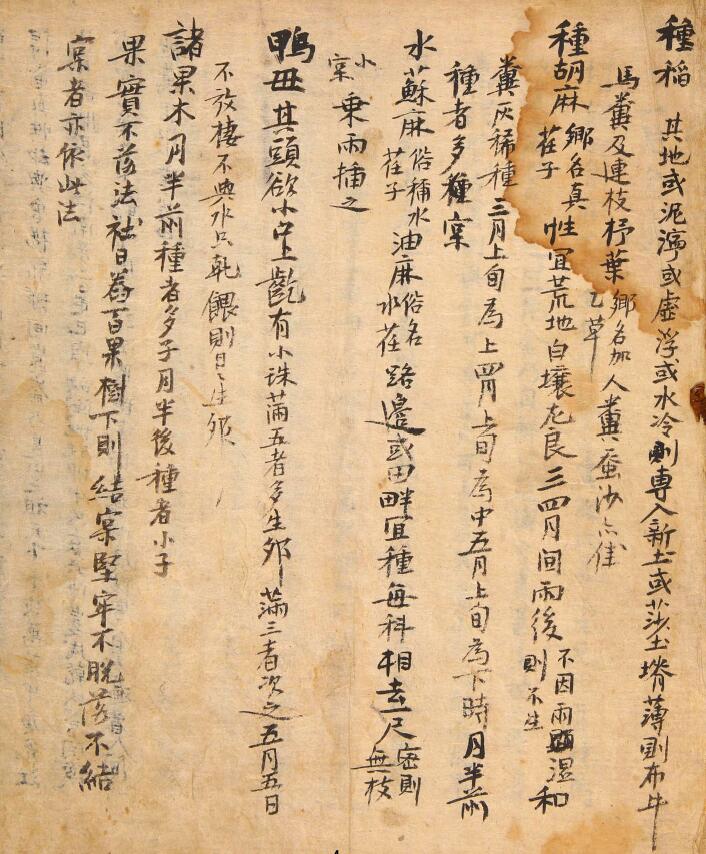 種稻 其地或泥濘或虛浮或水冷則專入新土或莎土塉薄則布牛
馬糞及連枝杼葉鄕名加乙草人糞蚕沙亦佳
種胡麻鄕名真荏子性宜荒地白壤尤良三四月間雨後不因雨濕則不生和
糞灰稀種三月上旬爲上四月上旬爲中五月上旬爲下時月半前
種者多種宲
水蘇麻俗稱水荏子油麻俗名水荏路邊或田畔宜種每科相去一尺密則無枝
小宲乘雨揷之
鴨丑其頭欲小口上齕有小珠滿五者多生卵滿三者次之五月五日
不放棲不與水只乾餵則日日生卵
諸果木月半前種者多子月半後種者小子
果實不落法社日舂百果樹下則結宲堅牢不脫落不結
宲者亦依此法